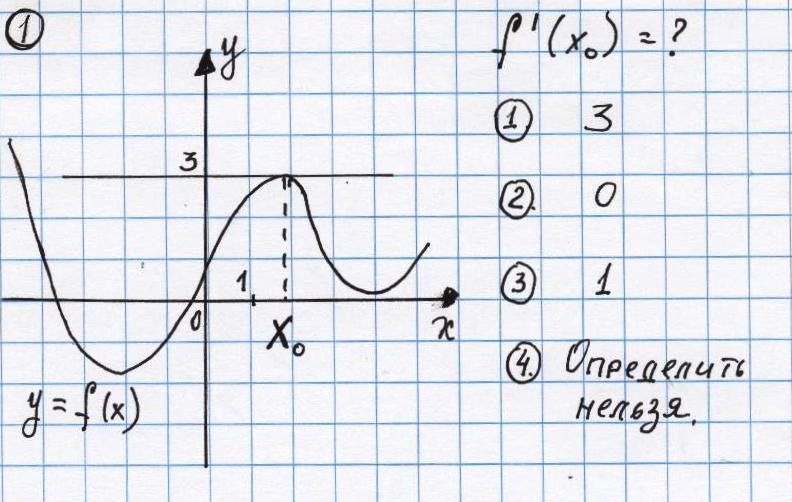 ①
y
f'(x₀) = ?
① 3
3
② 0
1
③ 1
0
X₀
x
④ Определить
нельзя.
y = f(x)